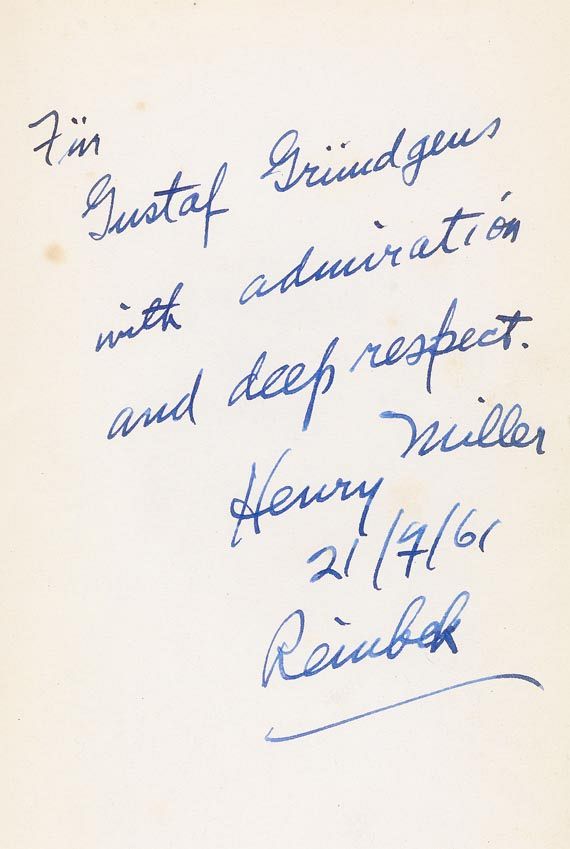 Für
Gustaf Gründgens
with admiration
and deep respect.
Henry Miller
21/9/61
Reinbek